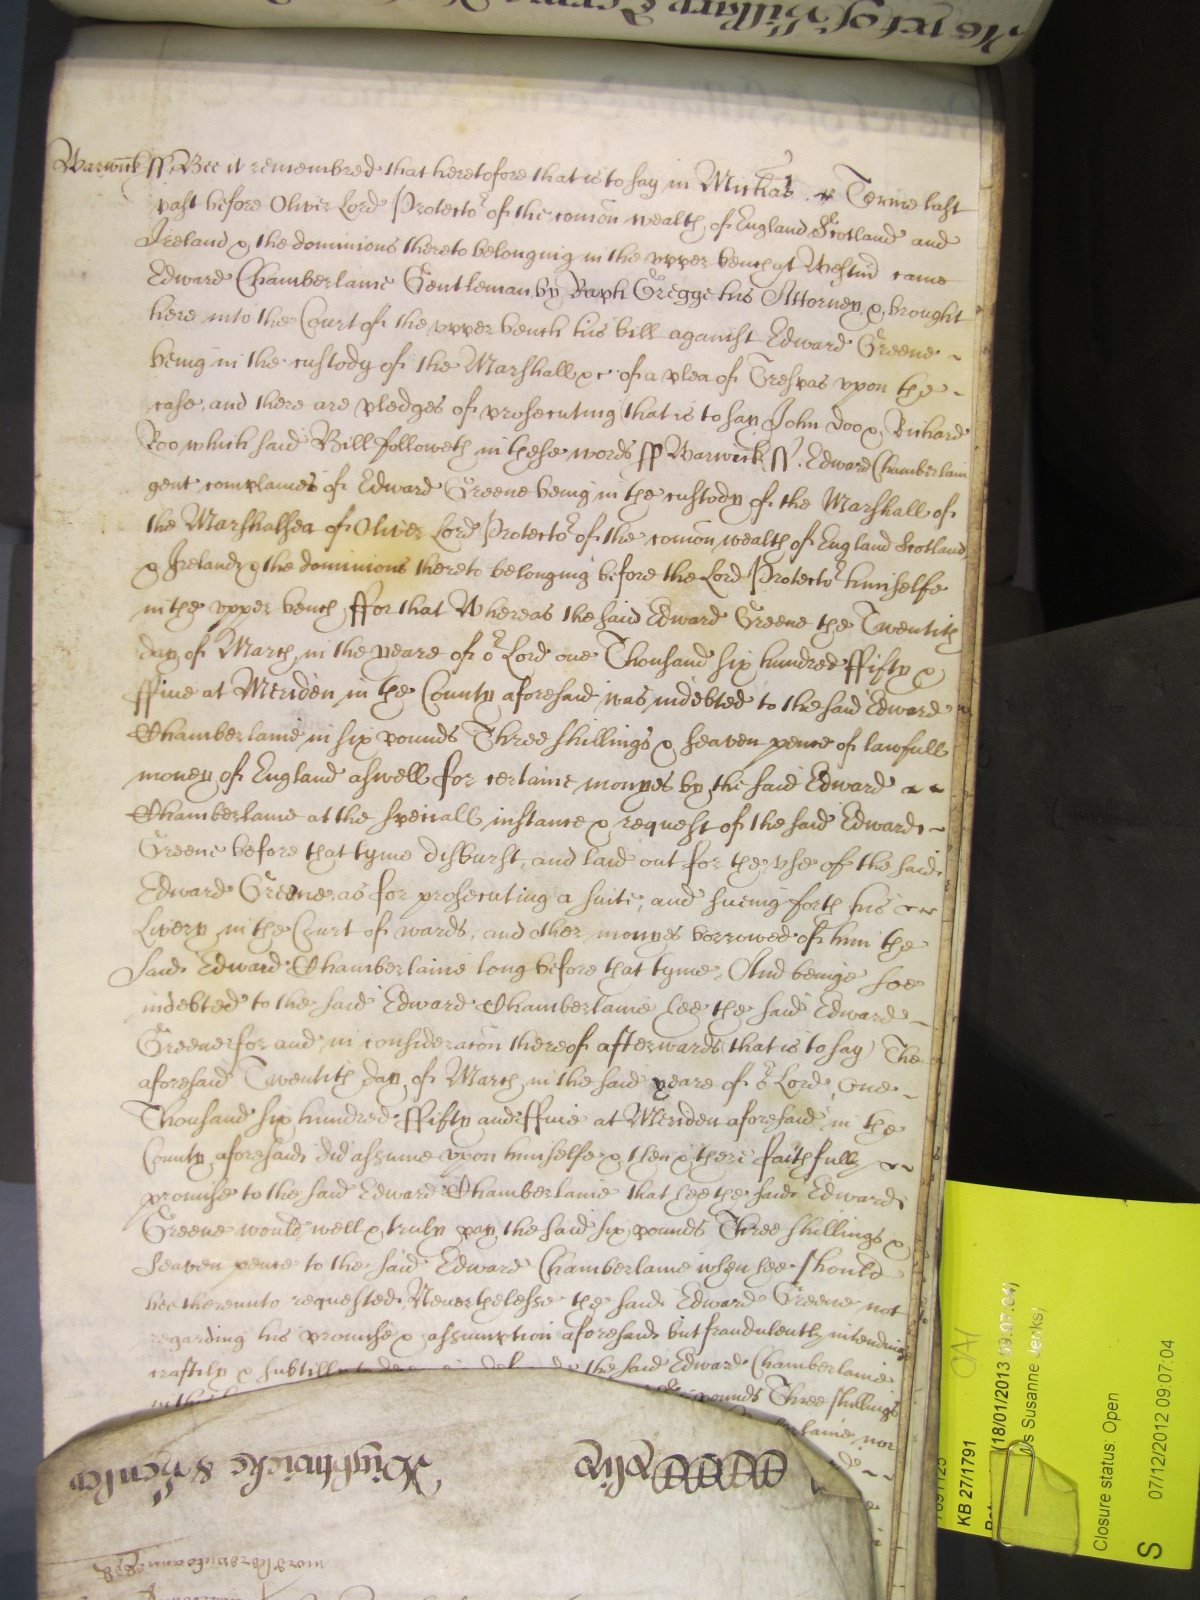 Warwick ss Bee it remembred that heretofore that is to say in Michas Terme last
past before Oliver Lord Protector of the comon wealth of England Scotland and
Ireland & the dominions thereto belonging in the upper bench at Westm came
Edward Chamberlaine Gentleman by Raph Gregge his Attorney & brought
here into the Court of the upper bench his bill against Edward Greene
being in the custody of the Marshall &c of a plea of Trespas upon the
case, and there are pledges of prosecuting that is to say John Doo & Richard
Roo which said Bill followeth in these words ss Warwick ss. Edward Chamberlain
gent complaines of Edward Greene being in the custody of the Marshall of
the Marshalsea of Oliver Lord Protector of the comon wealth of England Scotland
& Ireland & the dominions thereto belonging before the Lord Protector himselfe
in the upper bench ffor that Whereas the said Edward Greene the Twentith
day of March in the yeare of or Lord one Thousand six hundred ffifty &
ffive at Meriden in the County aforesaid was indebted to the said Edward
Chamberlaine in six pounds Three shillings & seaven pence of lawfull
money of England aswell for certaine monyes by the said Edward
Chamberlaine at the speciall instance & request of the said Edward
Greene before that tyme disburst, and laid out for the use of the said
Edward Greene, as for prosecuting a suite, and sueing forth his
Livery in the Court of wards, and other monyes borrowed of him the
said Edward Chamberlaine long before that tyme, And beinge soe
indebted to the said Edward Chamberlaine hee the said Edward
Greene for and in consideracon thereof afterwards (that is to say) The
aforesaid Twentith day of March in the said yeare of or Lord, one
Thousand six hundred ffifty and ffive at Meriden aforesaid in the
County aforesaid did assume upon himselfe & then & there faithfully
promise to the said Edward Chamberlaine that hee the said Edward
Greene would well & truly pay the said six pounds Three shillings &
seaven pence to the said Edward Chamberlaine when hee should
bee thereunto requested Neverthelesse the said Edward Greene not
regarding his promise & assumption aforesaid but fraudulently intending
craftily & subtilly the said Edward Chamberlaine
pounds Three shillings
nor
Wightwicke & Henley
KB 27/1791
(18/01/2013 09:07:04)
Susanne Jenks)
Closure status: Open
S
07/12/2012 09:07:04